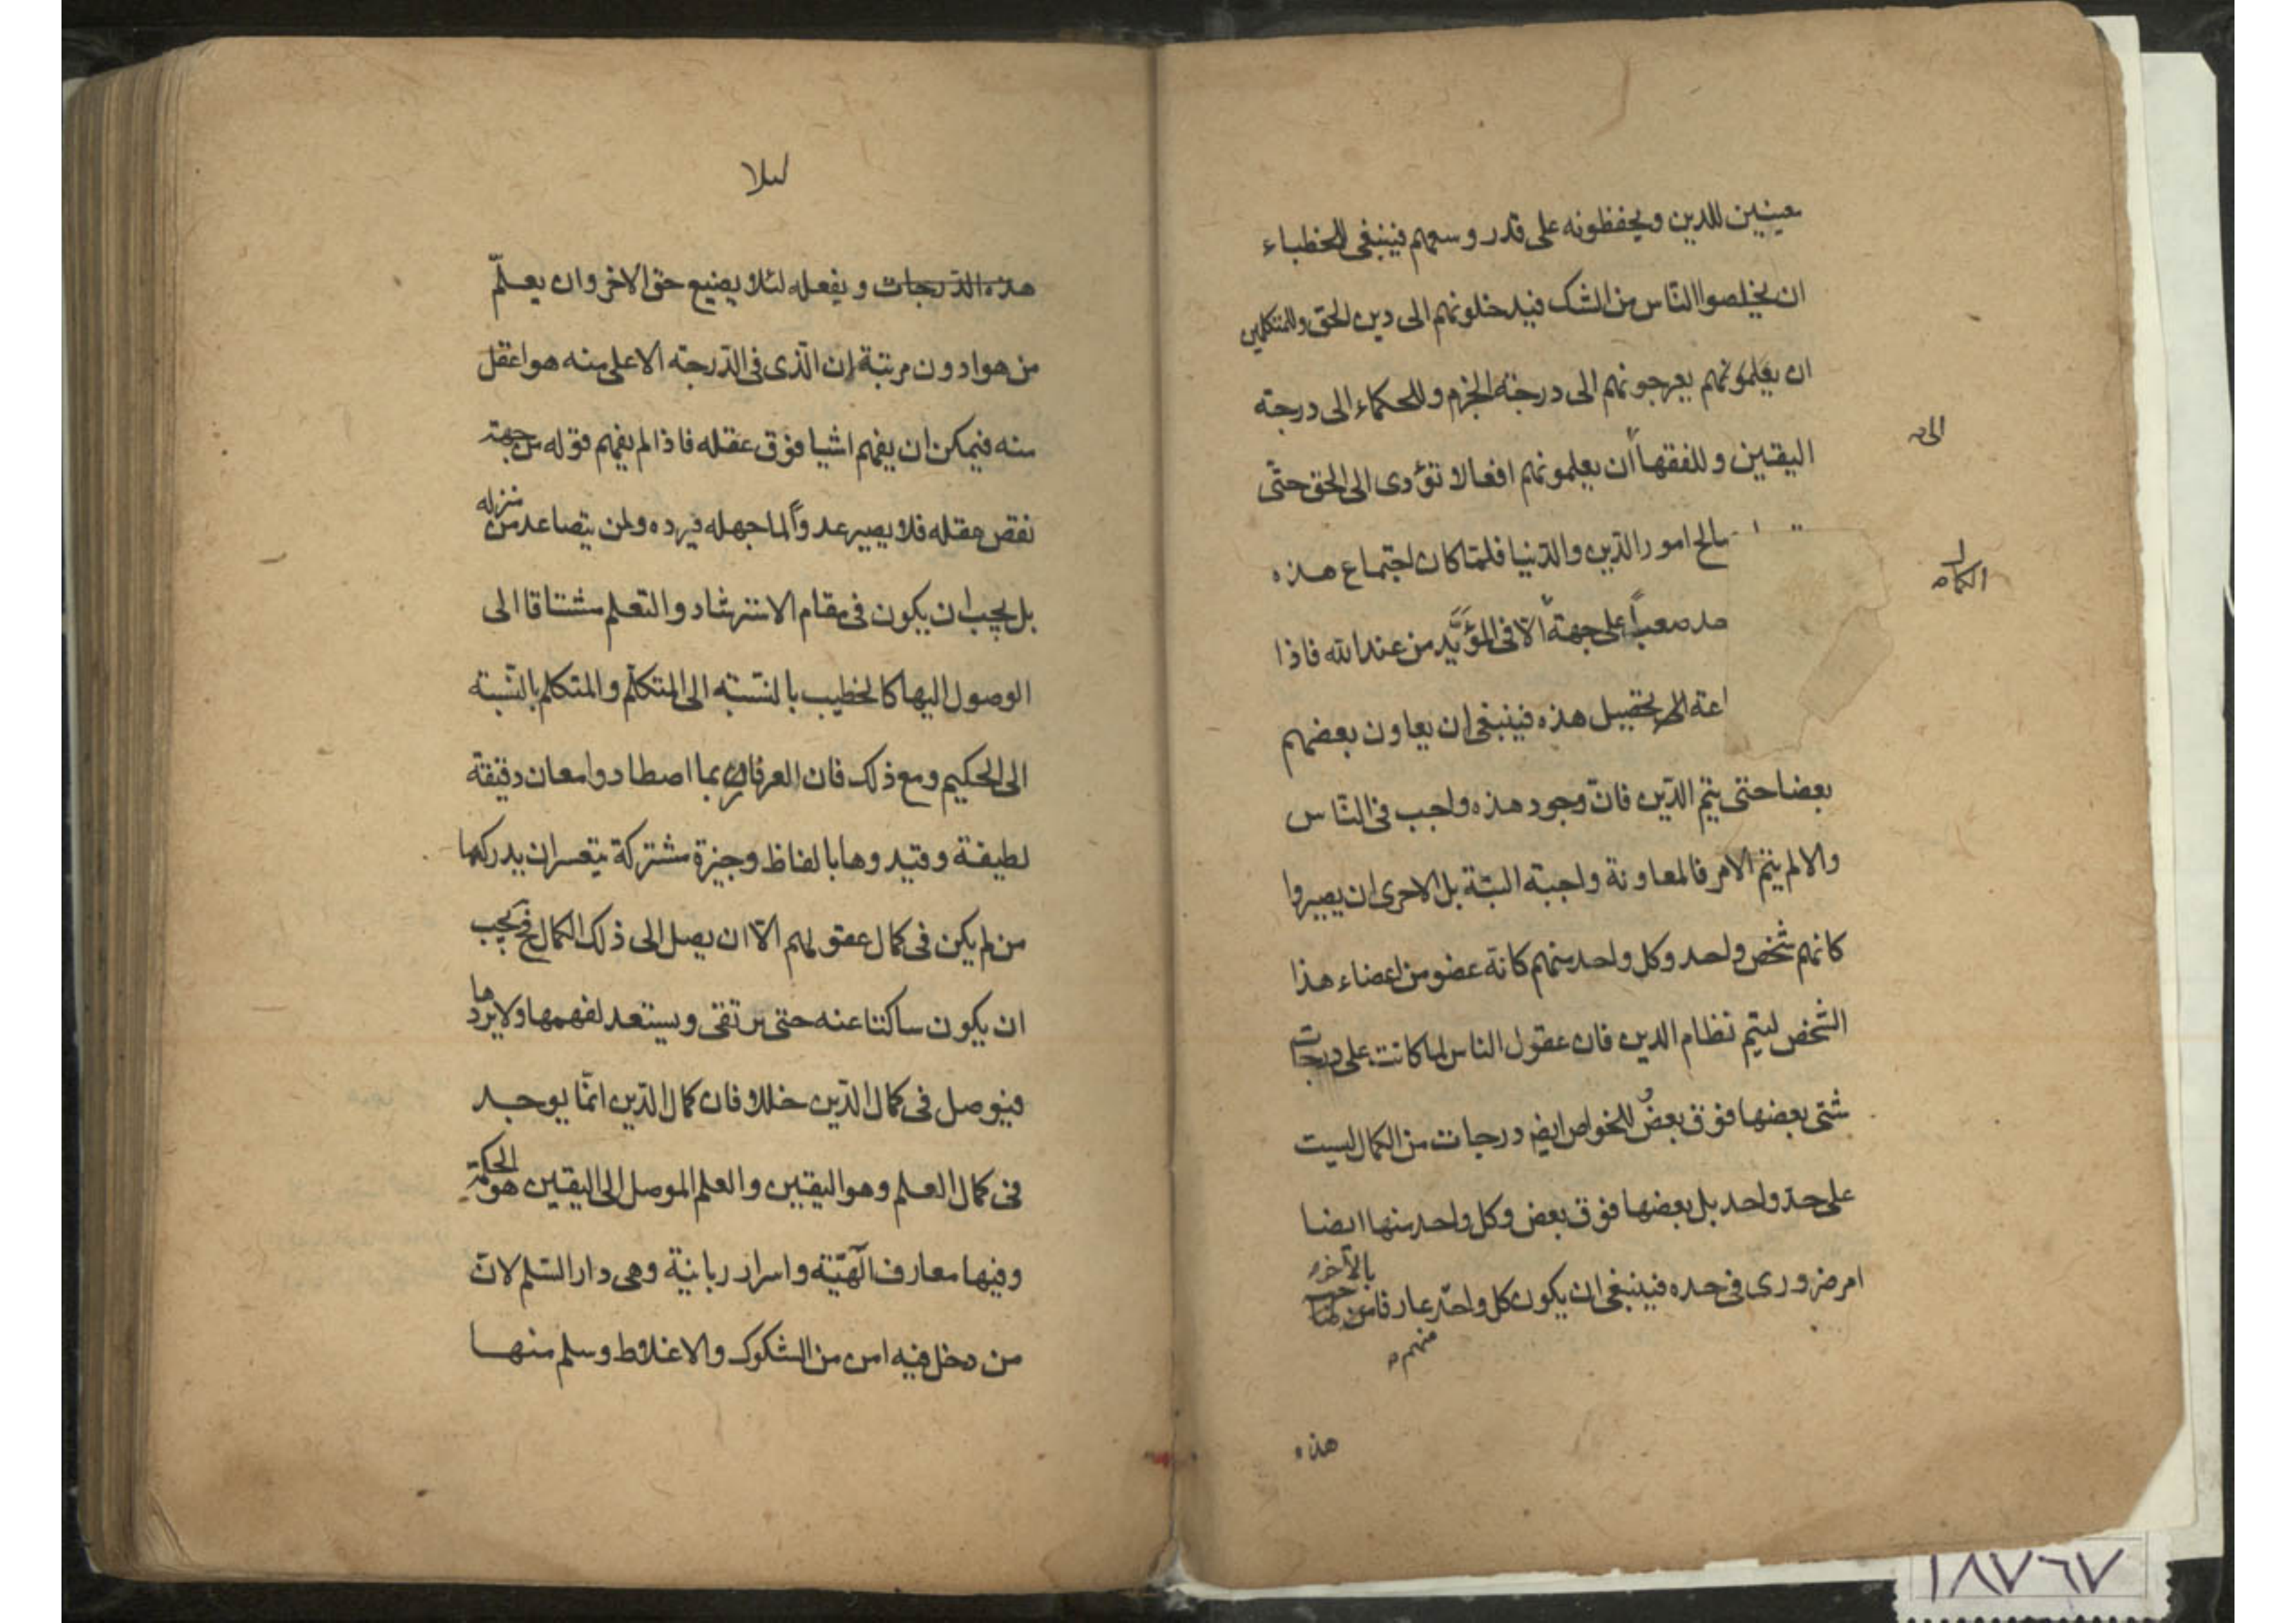 معينين للدين ويحفظونه على قدر وسعهم فينبغى للخطباء
ان يخلصوا الناس من الشك فيدخلونهم الى دين الحق وللمتكلمين
ان يعلمونهم يعرجونهم الى درجة الجزم وللحكماء الى درجة
اليقين وللفقهاء ان يعلمونهم افعالا تؤدى الى الحق حتّى
الى
صالح امور الدّين والدّنيا فلمّا كان اجتماع هذه
صعباً على جهة الّا فى المؤيَّد من عند الله فاذا
الى تحصيل هذه فينبغى ان يعاون بعضهم
بعضا حتى يتم الدّين فانّ وجود هذه واجب فى النّاس
والا لم يتم الامر فالمعاونة واجبة البتّة بل الاحرى ان يصيروا
كانهم شخص واحد وكل واحد منهم كانّه عضو من اعضاء هذا
الشخص ليتم نظام الدين فان عقول الناس لما كانت على درجات
شتى بعضها فوق بعض للخواص ايضا درجات من الكمال ليست
على حدّ واحد بل بعضها فوق بعض وكل واحد منها ايضا
امر ضرورى فى حده فينبغى ان يكون كل واحد عارفا
بالآخر
منهم
هذه
ليلا
هذه الدّرجات ويفعله لئلا يضيع حق الاخر وان يعلّم
من هو ادون مرتبة ان الّذى فى الدّرجة الاعلى منه هو اعقل
منه فيمكن ان يفهم اشيا فوق عقله فاذا لم يفهم قوله من جهة
نقص عقله فلا يصير عدوّاً لما جهله فيرده ولن يتصاعد من منزله
بل يجب ان يكون فى مقام الاسترشاد والتعلم مشتاقا الى
الوصول اليها كالخطيب بالنسّبة الى المتكلّم والمتكلم بالنّسبة
الى الحكيم ومع ذلك فان العرفاء ربما اصطادوا معان دقيقة
لطيفة وقيدوها بالفاظ وجيزة مشتركة يتعسر ان يدركها
من لم يكن فى كمال عقولهم الّا ان يصل الى ذلك الكمال فح يجب
ان يكون ساكتا عنه حتى يرتقى ويستعد لفهمها ولا يردها
فيوصل فى كمال الدّين خللا فان كمال الدّين انّما يوجد
فى كمال العلم وهو اليقين والعلم الموصل الى اليقين هو الحكمة
وفيها معارف آلهيّة واسرار ربانية وهى دار السّلم لانّ
من دخل فيه امن من الشكوك والاغلاط وسلم منها
١٨٧٦٧